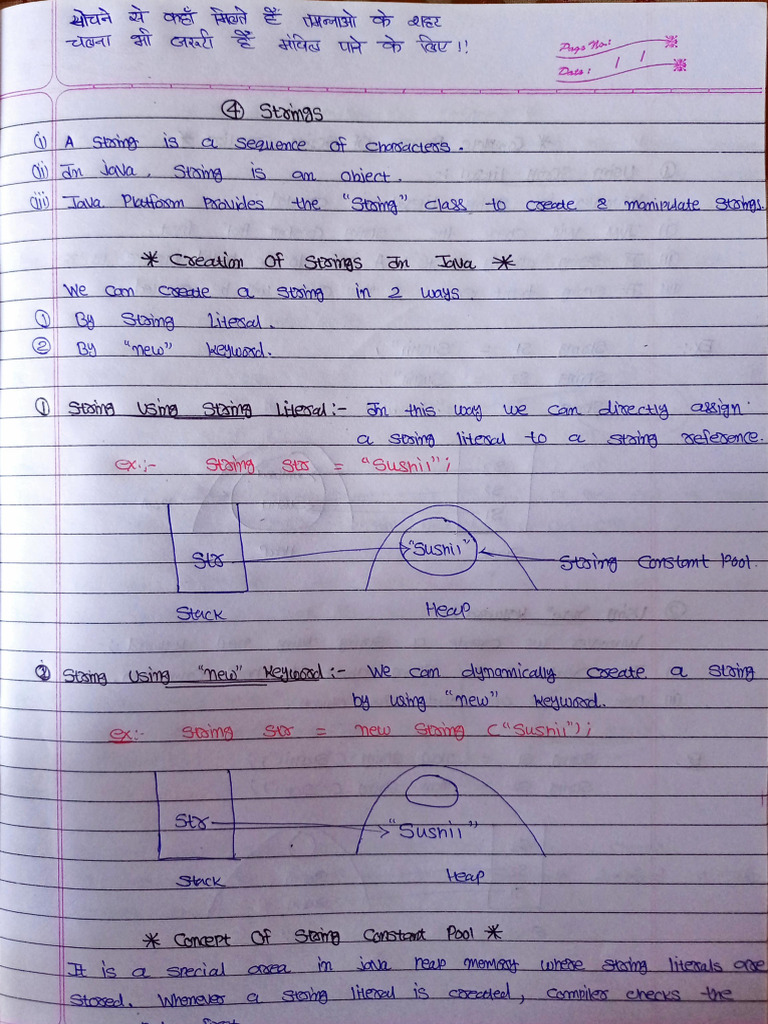 सोचने से कहाँ मिलते हैं तमन्नाओ के शहर
चलना भी जरुरी हैं मंजिल पाने के लिए!!
Page No:
Date: / /
④ Strings
(i) A String is a sequence of characters.
(ii) In Java, String is an object.
(iii) Java Platform Provides the "String" class to create & manipulate strings.
* Creation Of Strings In Java *
We can create a string in 2 ways
① By String Literal.
② By "new" keyword.
① String Using String Literal:- In this way we can directly assign
a string literal to a string reference.
ex:- String str = "Sushil";
Str
"Sushil"
String Constant Pool.
Stack
Heap
② String Using "new" keyword:- We can dynamically create a string
by using "new" keyword.
ex:- String str = new String ("Sushil");
Str
"Sushil"
Stack
Heap
* Concept Of String Constant Pool *
It is a special area in java heap memory where string literals are
stored. Whenever a string literal is created, compiler checks the